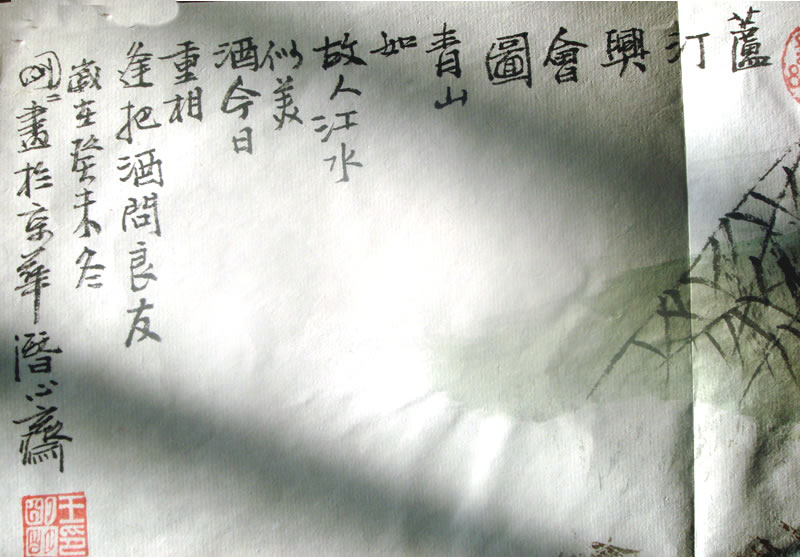 蘆汀興會圖
青山
如
故人江水
似美
酒今日
重相
逢把酒問良友
歲在癸未冬
明〻畫於京華潛心齋
王印明明